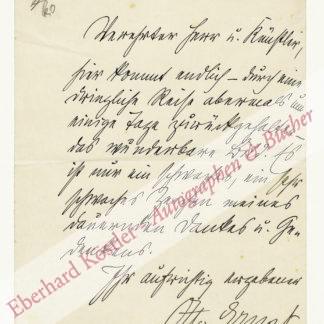 Verehrter Herr u. Künstler,
hier kommt endlich – durch eine
dringliche Reise abermals um
einige Tage zurückgehalten –
das wunderbare Es
ist nur ein schwaches, ein sehr
schwaches Zeichen meines
dauernden Dankes u. Ge-
denkens.
Ihr aufrichtig ergebener
Otto Ernst
Eberhard Köstler Autographen & Bücher